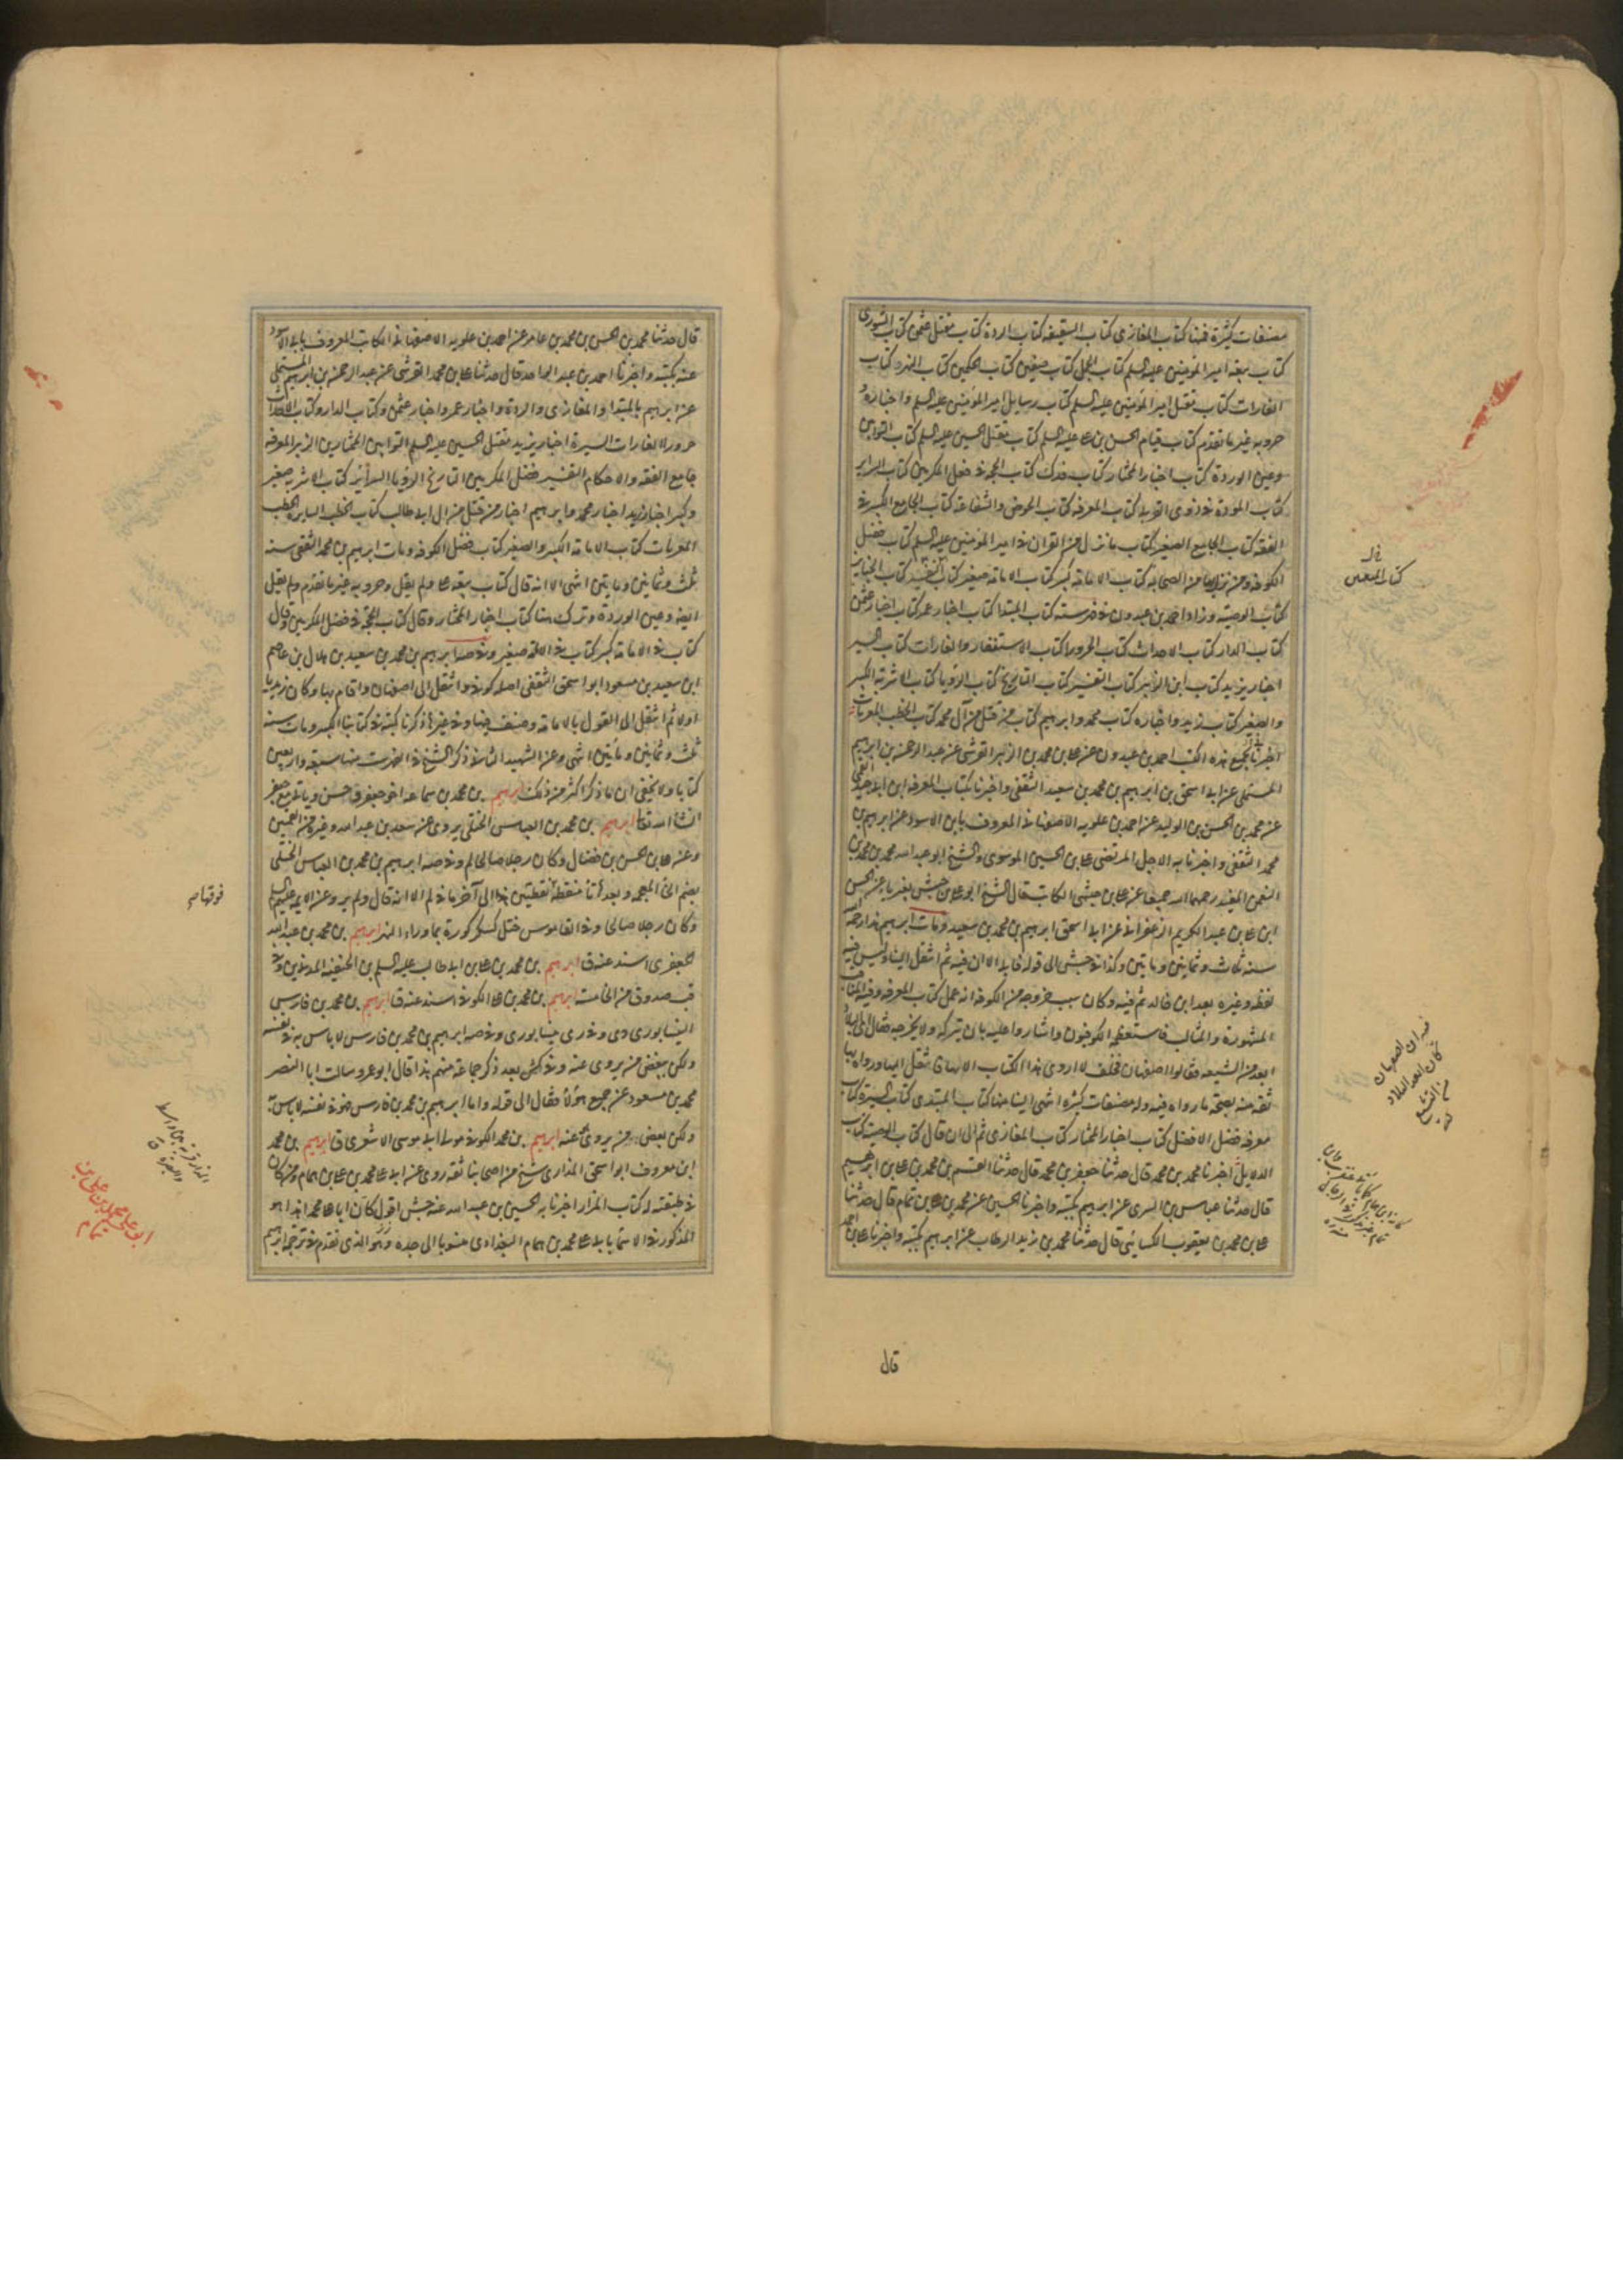 مصنفات كثيرة منها كتاب المغازي كتاب السقيفة كتاب الردة كتاب مقتل عثمن كتاب الشورى
كتاب بيعة امير المؤمنين عليه السلم كتاب الجمل كتاب صفين كتاب الحكمين كتاب النهر كتاب
الغارات كتاب مقتل امير المؤمنين عليه السلم كتاب رسايل امير المؤمنين عليه السلم واخباره و
حروبه غير ما تقدم كتاب قيام الحسن بن على عليه السلم كتاب مقتل الحسين عليه السلم كتاب التوابين
وعين الوردة كتاب اخبار المختار كتاب فدك كتاب الحجة في فعل المكرمين كتاب السراير
كتاب المودة في ذوى القربى كتاب المعرفة كتاب الحوض والشفاعة كتاب الجامع الكبير في
الفقه كتاب الجامع الصغير كتاب ما نزل من القران في امير المؤمنين عليه السلم كتاب فضل
الكوفة ومن نزلها من الصحابة كتاب الامامة كبير كتاب الامامة صغير كتاب كتاب الجنايز
كتاب الوصية وزاد احمد بن عبدون في فهرسته كتاب المبتدا كتاب اخبار عمر كتاب اخبار عثمن
كتاب الدار كتاب الاحداث كتاب الحرورا كتاب الاستنفار والغارات كتاب السير
اخبار يزيد كتاب ابن الزبير كتاب التفسير كتاب التاريخ كتاب الرؤيا كتاب الاشربة الكبير
والصغير كتاب زيد واخباره كتاب محمد وابرهيم كتاب من قتل من آل محمد كتاب الخطب المعربات
اخبرنا بجميع هذه الكتب احمد بن عبدون عن على بن محمد بن الزبير القرشى عن عبد الرحمن بن ابرهيم
المستملى عن ابى اسحق بن ابرهيم بن محمد بن سعيد الثقفى واخبرنا بكتاب المعرفة ابن ابى جيد القمي
عن محمد بن الحسن بن الوليد عن احمد بن علويه الاصفهاني المعروف بابن الاسود عن ابرهيم بن
محمد الثقفى واخبرنا به الاجل المرتضى على بن الحسين الموسوى والشيخ ابو عبد الله محمد بن محمد بن
النعمن المفيد رحمهما الله جميعا عن على بن حبشى الكاتب قال الشيخ ابو على بن حبشى بغير ياء عن الحسن
ابن على بن عبد الكريم الزعفراني عن ابى اسحق ابرهيم بن محمد بن سعيد ومات ابرهيم هذا رحمه الله
سنة ثلاث وثمانين ومايتين وكذا في جش الى قوله قابلا الا ان فيه ثم انتقل الينا وليس فيه
لفظ وغيره بعد ابن خالد ثم فيه وكان سبب خروجه من الكوفة انه عمل كتاب المعرفة وفيه المناقب
المشهورة والمثالب فاستعظمه الكوفيون واشاروا عليه بان يتركه ولا يخرجه فقال اى البلاد
ابعد من الشيعة فقالوا اصفهان فحلف لا اروى هذا الكتاب الا بها فانتقل اليها ورواه بها
ثقة منه بصحة ما رواه فيه وله مصنفات كثيرة انتهى الينا منها كتاب المبتدى كتاب السيرة كتاب
معرفة فضل الافضل كتاب اخبار المختار كتاب المغازي ثم الى ان قال كتاب الوصية كتاب
الدلايل اخبرنا محمد بن محمد قال حدثنا جعفر بن محمد قال حدثنا القسم بن محمد بن على بن ابرهيم
قال حدثنا عباس بن السرى عن ابرهيم بكتبه واخبرنا الحسين عن محمد بن على بن تمام قال حدثنا
على بن محمد بن يعقوب الكسائى قال حدثنا محمد بن زيد الرطاب عن ابرهيم بكتبه واخبرنا على بن احمد
قال
قال حدثنا محمد بن الحسن بن محمد بن عامر عن احمد بن علويه الاصفهاني الكاتب المعروف بابى الاسود
عنه بكتبه واخبرنا احمد بن عبد الواحد قال حدثنا على بن محمد القرشى عن عبد الرحمن بن ابرهيم المستملى
عن ابرهيم بالمبتدا والمغازي والردة واخبار عمر واخبار عثمن وكتاب الدار وكتاب الاحداث
حرورا الغارات السيرة اخبار يزيد مقتل الحسين عليه السلم التوابين المختار ابن الزبير المعرفة
جامع الفقه والاحكام التفسير فضل المكرمين التاريخ الرؤيا السراير كتاب الاشربة صغير
وكبير اخبار زيد اخبار محمد وابرهيم اخبار من قتل من ال ابى طالب كتاب الخطب السايرة الخطب
المعربات كتاب الامامة الكبير والصغير كتاب فضل الكوفة ومات ابرهيم بن محمد الثقفى سنة
ثلث وثمانين ومايتين انتهى الا انه قال كتاب بيعة على ولم يقل وحروبه غير ما تقدم ولم يقل
ايضا وعين الوردة وترك هنا كتاب اخبار المختار وقال كتاب الحجة في فضل المكرمين وقال
كتاب في الامامة كبير كتاب في الامامة صغير وفي صه ابرهيم بن محمد بن سعيد بن هلال بن عاصم
ابن سعيد بن مسعود ابو اسحق الثقفى اصله كوفي وانتقل الى اصفهان واقام بها وكان زيديا
اولا ثم انتقل الى القول بالامامة وصنف فيها وفي غيرها ذكرنا كتبه في كتابنا الكبير ومات سنة
ثلث وثمانين ومأتين انتهى وعن الشهيد الثاني ذكر الشيخ في الفهرست منها سبعة واربعين
كتابا ولا يخفى ان ما ذكر اكثر من ذلك ابرهيم بن محمد بن سماعة اخو جعفر وحسن وياتي مع جعفر
انشاء الله تعالى ابرهيم بن محمد بن العباس الختلى يروى عن سعد بن عبد الله وغيره من القميين
وعن على بن الحسن بن فضال وكان رجلا صالحا لم وفي صه ابرهيم بن محمد بن العباس الختلى
بضم الخاء المعجمة وبعدها تا منقطة نقطتين الى آخر ما في لم الا انه قال ولم يرو عن الايمة عليهم السلم
وكان رجلا صالحا وفي القاموس ختل كسكر كورة بما وراء النهر ابرهيم بن محمد بن عبد الله
الجعفرى اسند عنه ق ابرهيم بن محمد بن على بن ابى طالب عليه السلم بن الحنفية المدني
قب صدوق من الخامسة ابرهيم بن محمد بن على الكوفي اسند عنه ق ابرهيم بن محمد بن فارس
النيسابورى دى وفي رى نيسابورى وفي صه ابرهيم بن محمد بن فارس لا باس به في نفسه
ولكن ببعض من يروى عنه وفي كش بعد ذكر جماعة منهم هذا قال ابو عمرو سالت ابا النضر
محمد بن مسعود عن جميع هؤلاء فقال الى قوله واما ابرهيم بن محمد بن فارس فهو في نفسه لا باس به
ولكن بعض من يروى عنه ابرهيم بن محمد الكوفي مولى ابى موسى الاشعرى ق ابرهيم بن محمد
ابن معروف ابو اسحق المذارى شيخ من اصحابنا ثقة روى عن ابى على محمد بن على بن همام ومن كان
في طبقته له كتاب المزار اخبرنا به الحسين بن عبد الله عنه جش اقول كان ابا على محمد هذا هو
المذكور في الاسماء بابى على محمد بن همام البغدادى منسوبا الى جده وهو الذى تقدم في ترجمة ابرهيم
فوقها صح
ابو على محمد بن على بن
همام